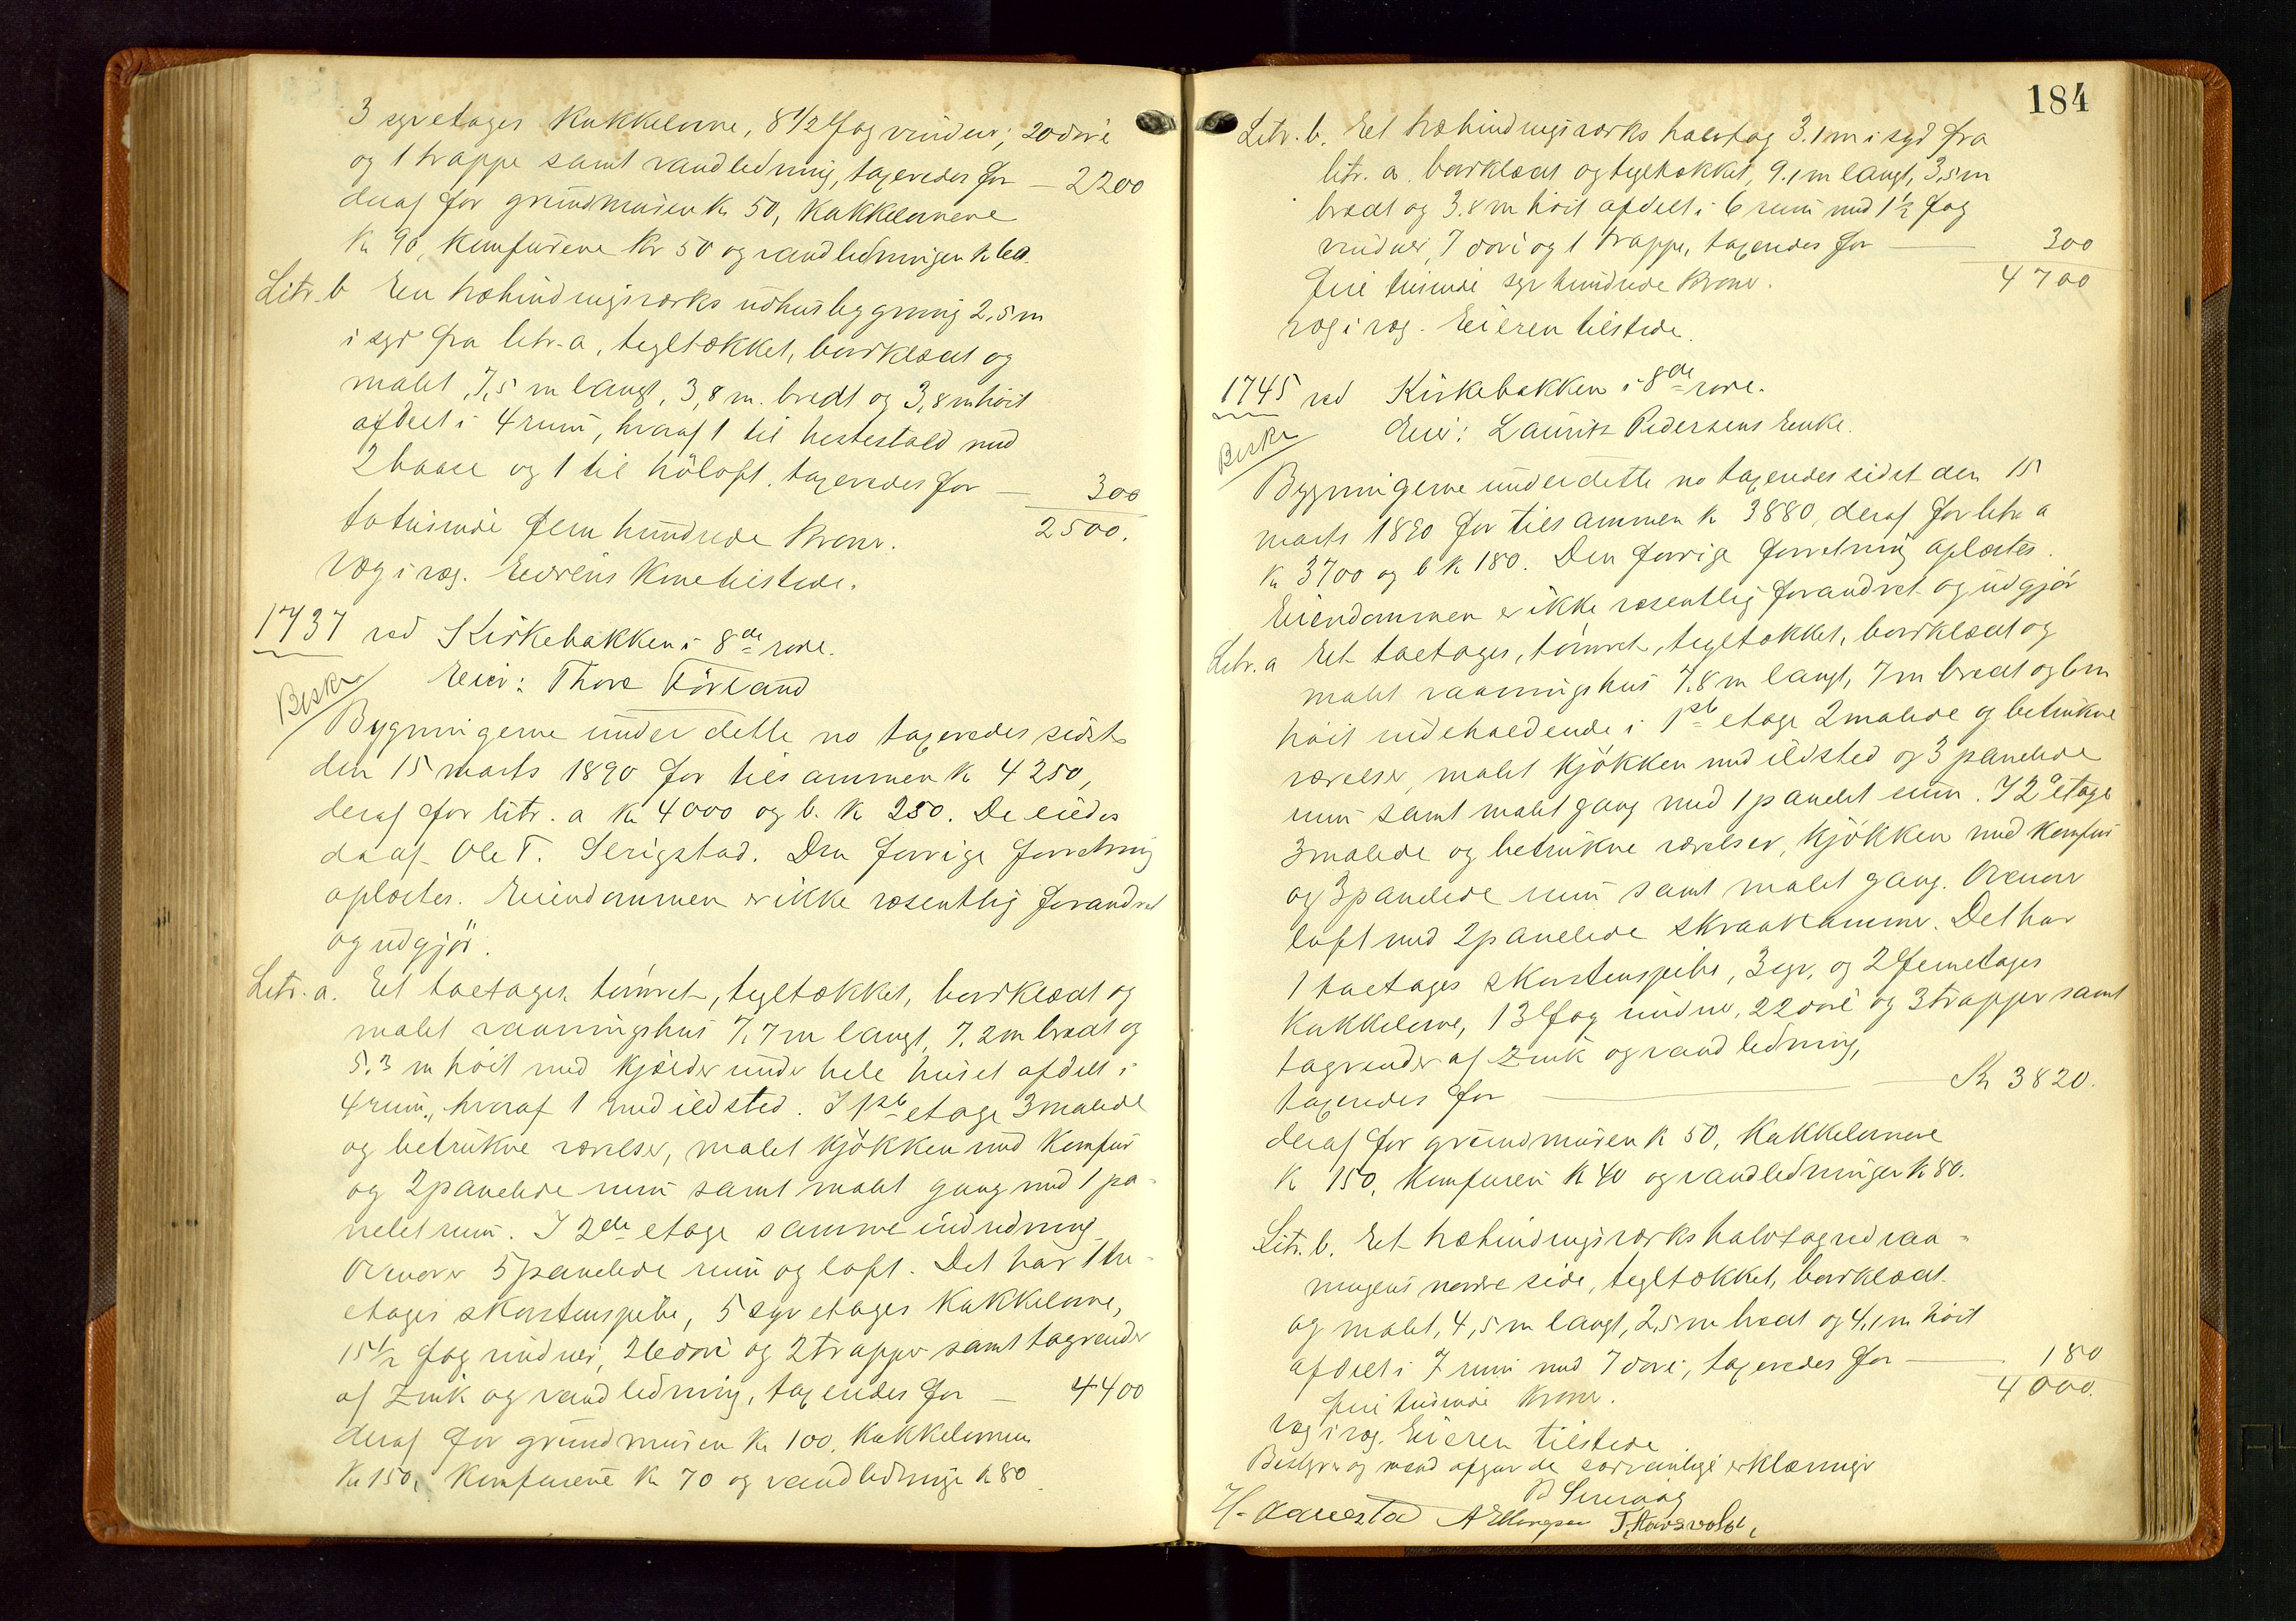 3 syvetages kakkelovne, 8 1/2 fag vinduer, 20 döre
og 1 trappe samt vandledning, taxeredes for — 2200
deraf for grundmuren Kr 50, kakkelovnene
Kr 90, komfurene Kr 50 og vandledningen Kr 60.
Litr. b En træbindingsværks udhusbygning 2,5 m
i syd fra litr. a, tegltækket, bordklædt og
malet, 7,5 m langt, 3,8 m. bredt og 3,8 m höit
afdelt i 4 rum, hvoraf 1 til hestestald med
2 baase og 1 til höloft, taxeredes for — 300
totusinde fem hundrede Kroner. 2500.
Væg i væg. Eierens Kone tilstede.
1737 ved Kirkebakken i 8de rode.
Beskr
Eier: Thore Förland
Bygningerne under dette no taxeredes sidst
den 15 marts 1890 for tilsammen Kr 4250,
deraf for litr. a Kr 4000 og b. Kr 250. De eiedes
da af Ole T. Serigstad. Den forrige forretning
oplæstes. Eiendommen er ikke væsentlig forandret
og udgjör.
Litr. a. Et toetages, tömret, tegltækket, bordklædt og
malet vaaningshus 7,7 m langt, 7,2 m bredt og
5,3 m höit med kjælder under hele huset afdelt i
4 rum, hvoraf 1 med ildsted. I 1ste etage 3 malede
og betrukne værelser, malet kjökken med komfur
og 2 panelede rum samt malet gang med 1 pa-
nelet rum. I 2den etage samme indredning
Ovenover 5 panelede rum og loft. Det har 1 tre-
etages skorstenspibe, 5 syvetages kakkelovne,
15 1/2 fag vinduer, 26 döre og 2 trapper samt tagrender
af zink og vandledning, taxeredes for — 4400
deraf for grundmuren Kr 100, kakkelovnene
Kr 150, komfurene Kr 70 og vandledninge Kr 80.
184
Litr. b. Et træbindingsværks halvtag 3.1 m i syd fra
litr. a. bordklædt og tegltækket, 9.1 m langt, 3,5 m
bredt og 3.8 m höit afdelt i 6 rum med 1 1/2 fag
vinduer, 7 döre og 1 trappe, taxeredes for — 300
fire tusinde syv hundrede Kroner. 4700
væg i væg. Eieren tilstede.
1745 ved Kirkebakken i 8de rode.
Beskr
Eier: Laurits Pedersens Enke.
Bygningerne under dette no taxeredes sidst den 15
marts 1890 for tilsammen Kr 3880, deraf for litr a
Kr 3700 og b Kr 180. Den forrige forretning oplæstes.
Eiendommen er ikke væsentlig forandret og udgjör
Litr. a Et toetages, tömret, tegltækket, bordklædt og
malet vaaningshus 7,8 m langt, 7 m bredt og 6 m
höit indeholdende i 1ste etage 2 malede og betrukne
værelser, malet kjökken med ildsted og 3 panelede
rum samt malet gang med 1 panelet rum. I 2 etage
3 malede og betrukne værelser, kjökken med komfur
og 3 panelede rum samt malet gang. Ovenover
loft med 2 panelede skraakammer. Det har
1 toetages skorstenspibe, 3 syv, og 2 femetages
kakkelovne, 13 fag vinduer, 22 döre og 3 trapper samt
tagrender af zink og vandledning,
taxeredes for — Kr 3820.
deraf for grundmuren Kr 50, kakkelovnene
Kr 150, komfuren Kr 40 og vandledningen Kr 80.
Litr. b. Et træbindingsværks halvtag ved vaa-
ningens nordre side, tegltækket, bordklædt
og malet, 4,5 m langt, 2,5 m bredt og 4,1 m höit
afdelt i 7 rum med 7 döre, taxeredes for — 180
fire tusinde Kroner. 4000.
væg i væg. Eieren tilstede
Bestyrer og mænd afgav de sædvanlige erklæringer